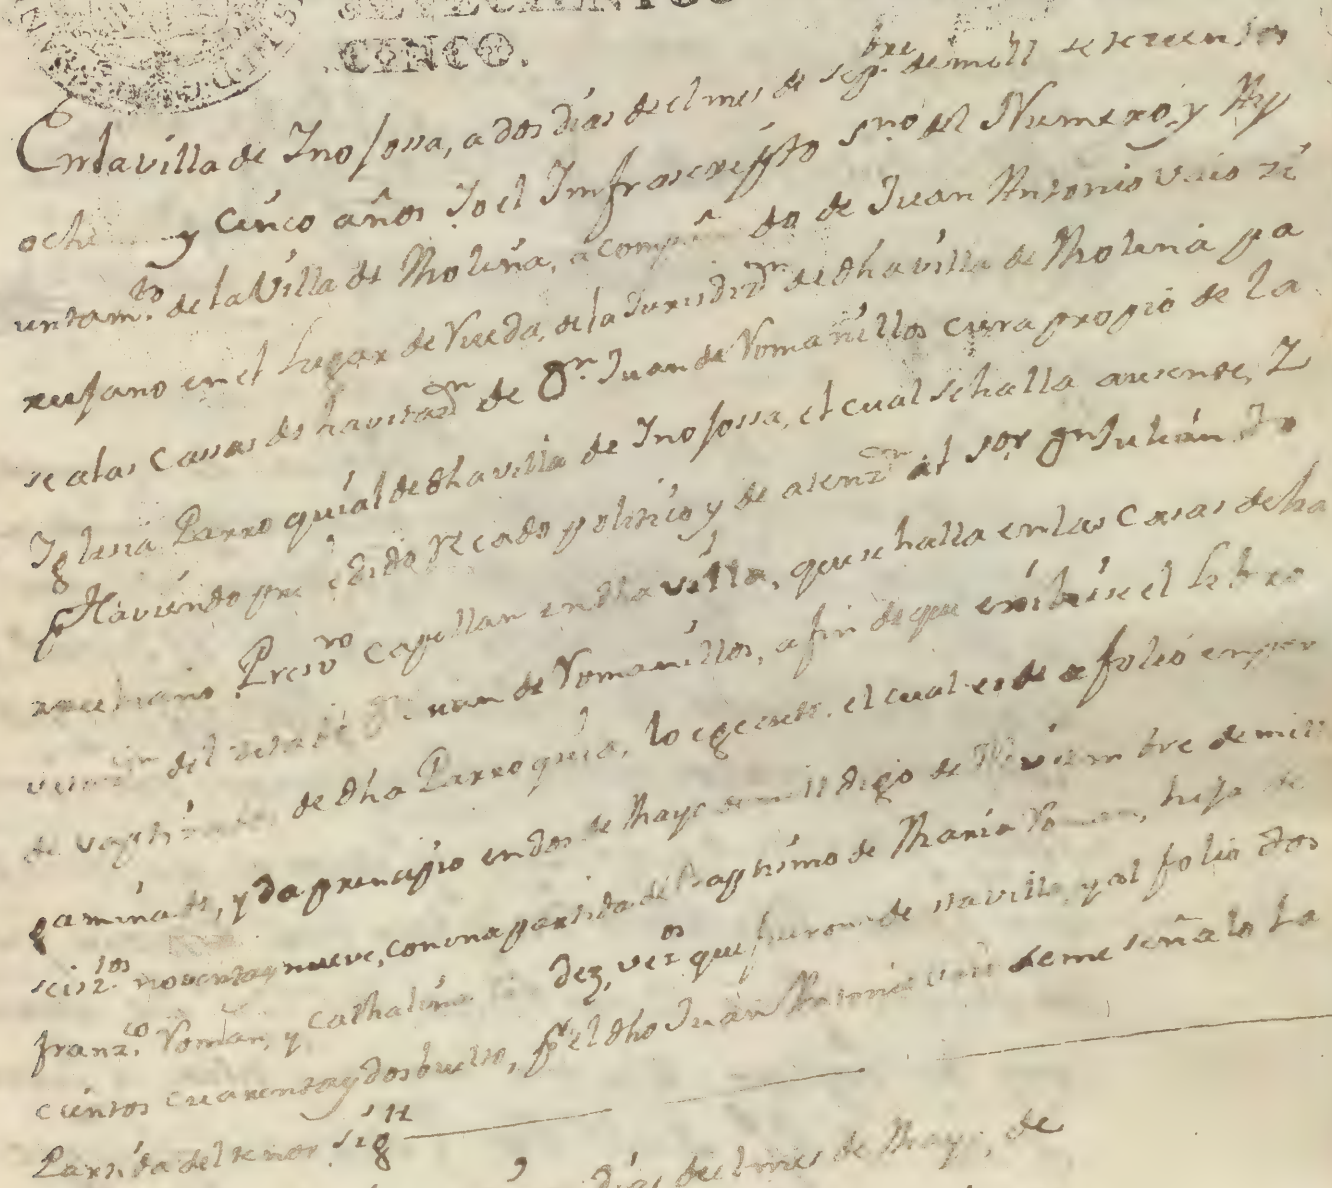 SETECIENTOS
CINCO.
En la villa de Inojossa, a dos dias de el mes de sepre. de mill setezientos
y cinco años Yo el Imfrascripto sno. del Numero, y Ay
untamto. de la Villa de Molina, acompañado de Juan Antonio Vaio zi
rujano en el Lugar de Rueda, de la Jurisdizn. de dha villa de Molina pa
se a las Cassas de havitazn. de Dn. Juan de Romanillos cura propio de la
Iglesia Parroquial de dha villa de Inojossa, el cual se halla ausente, Y
Haviendo precedido Recado politico y de atenzn. al sor. Dn Julián
Presvro. capellan en dha villa, que se halla en las Casas de ha
del Dn. Juan de Romanillos, a fin de que exibiese el Libro
de vaptizados de dha Parroquia, lo egecuto, el cual es de a folio en per
gaminado, y da prencipio en dos de Mayo de mill digo de Noviembre de mill
seiszos. noventa y nueve, con una partida de Baptismo de Maria Roman, hija de
franzco. Roman, y Cathalina dez, vezos. que fueron de esta villa, y al folio dos
cientos cuarenta y dos buelto, por el dho Juan Antonio Vaio se me señalo La
Partida del tenor sigte
dias de el mes de Mayo, de